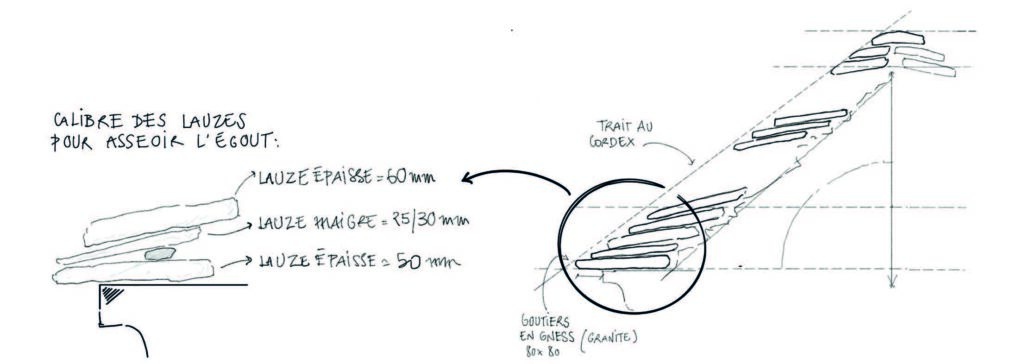 CALIBRE DES LAUZES
POUR ASSEOIR L'ÉGOUT:
LAUZE ÉPAISSE = 60 mm
LAUZE MAIGRE = 25/30 mm
LAUZE ÉPAISSE = 50 mm
TRAIT AU
CORDEX
GOUTIERS
EN GNESS (GRANITE)
80x80